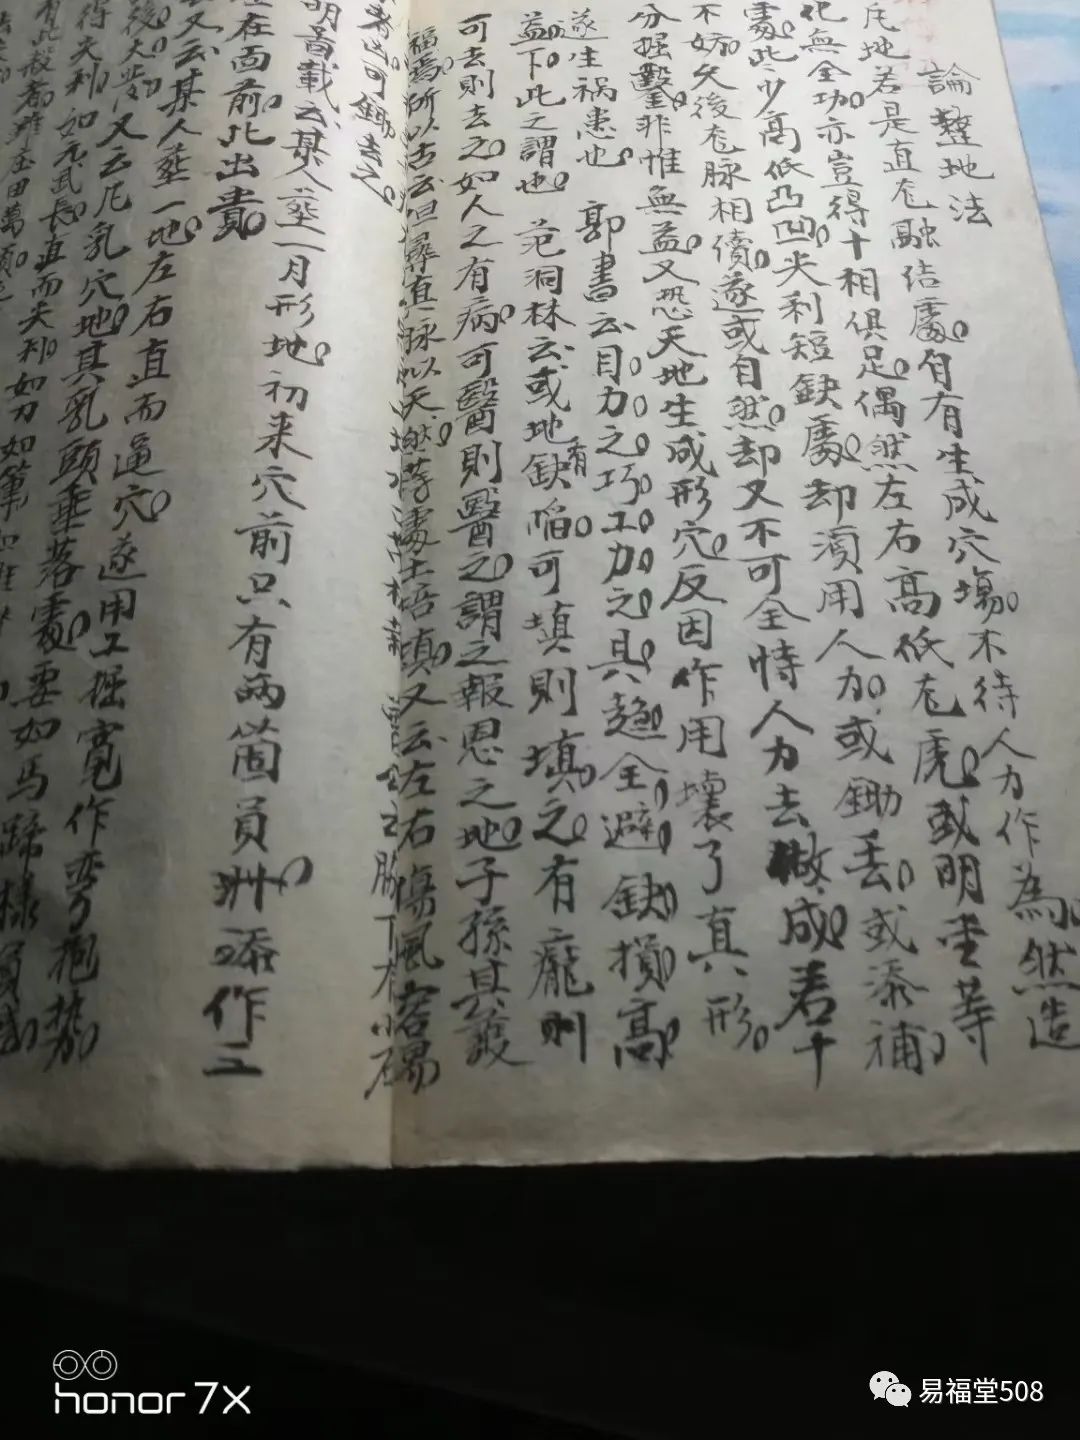 論整地法
凡地若是真龙融结處自有生成穴塲不待人力作為然造
化無全功亦豈得十相俱足偶然左右高低龙虎或明堂等
處此少高低凸凹尖利短缺處却湏用人力或鋤去或添補
不妨久後龙脉相續遂或自然却又不可全恃人力去做成若十
分掘鑿非惟無益又恐天地生成形穴反因作用壊了真形
遂生禍患也 郭書云目力之巧工力之具趨全避缺損高
益下此之謂也 范洞林云或地有缺陷可填則填之有龐則
可去則去之如人之有病可醫則醫之謂之報恩之地子孫其設
福焉所以古云但尋真脉似天然 處土培填又云左右傷風容易
脉下有小石
者出可鋤去之
明旹載云某人塟一月形地初来穴前只有兩箇員洲添作二
在面前此出貴
又云某人塟一地左右直而逼穴遂用工掘寛作弯抱势
後大發又云凡乳穴地其乳頭垂落處要如馬蹄様員
得尖利如玄武長直而尖利如刀如筆
有此般者難至田萬頃
honor 7X
易福堂508